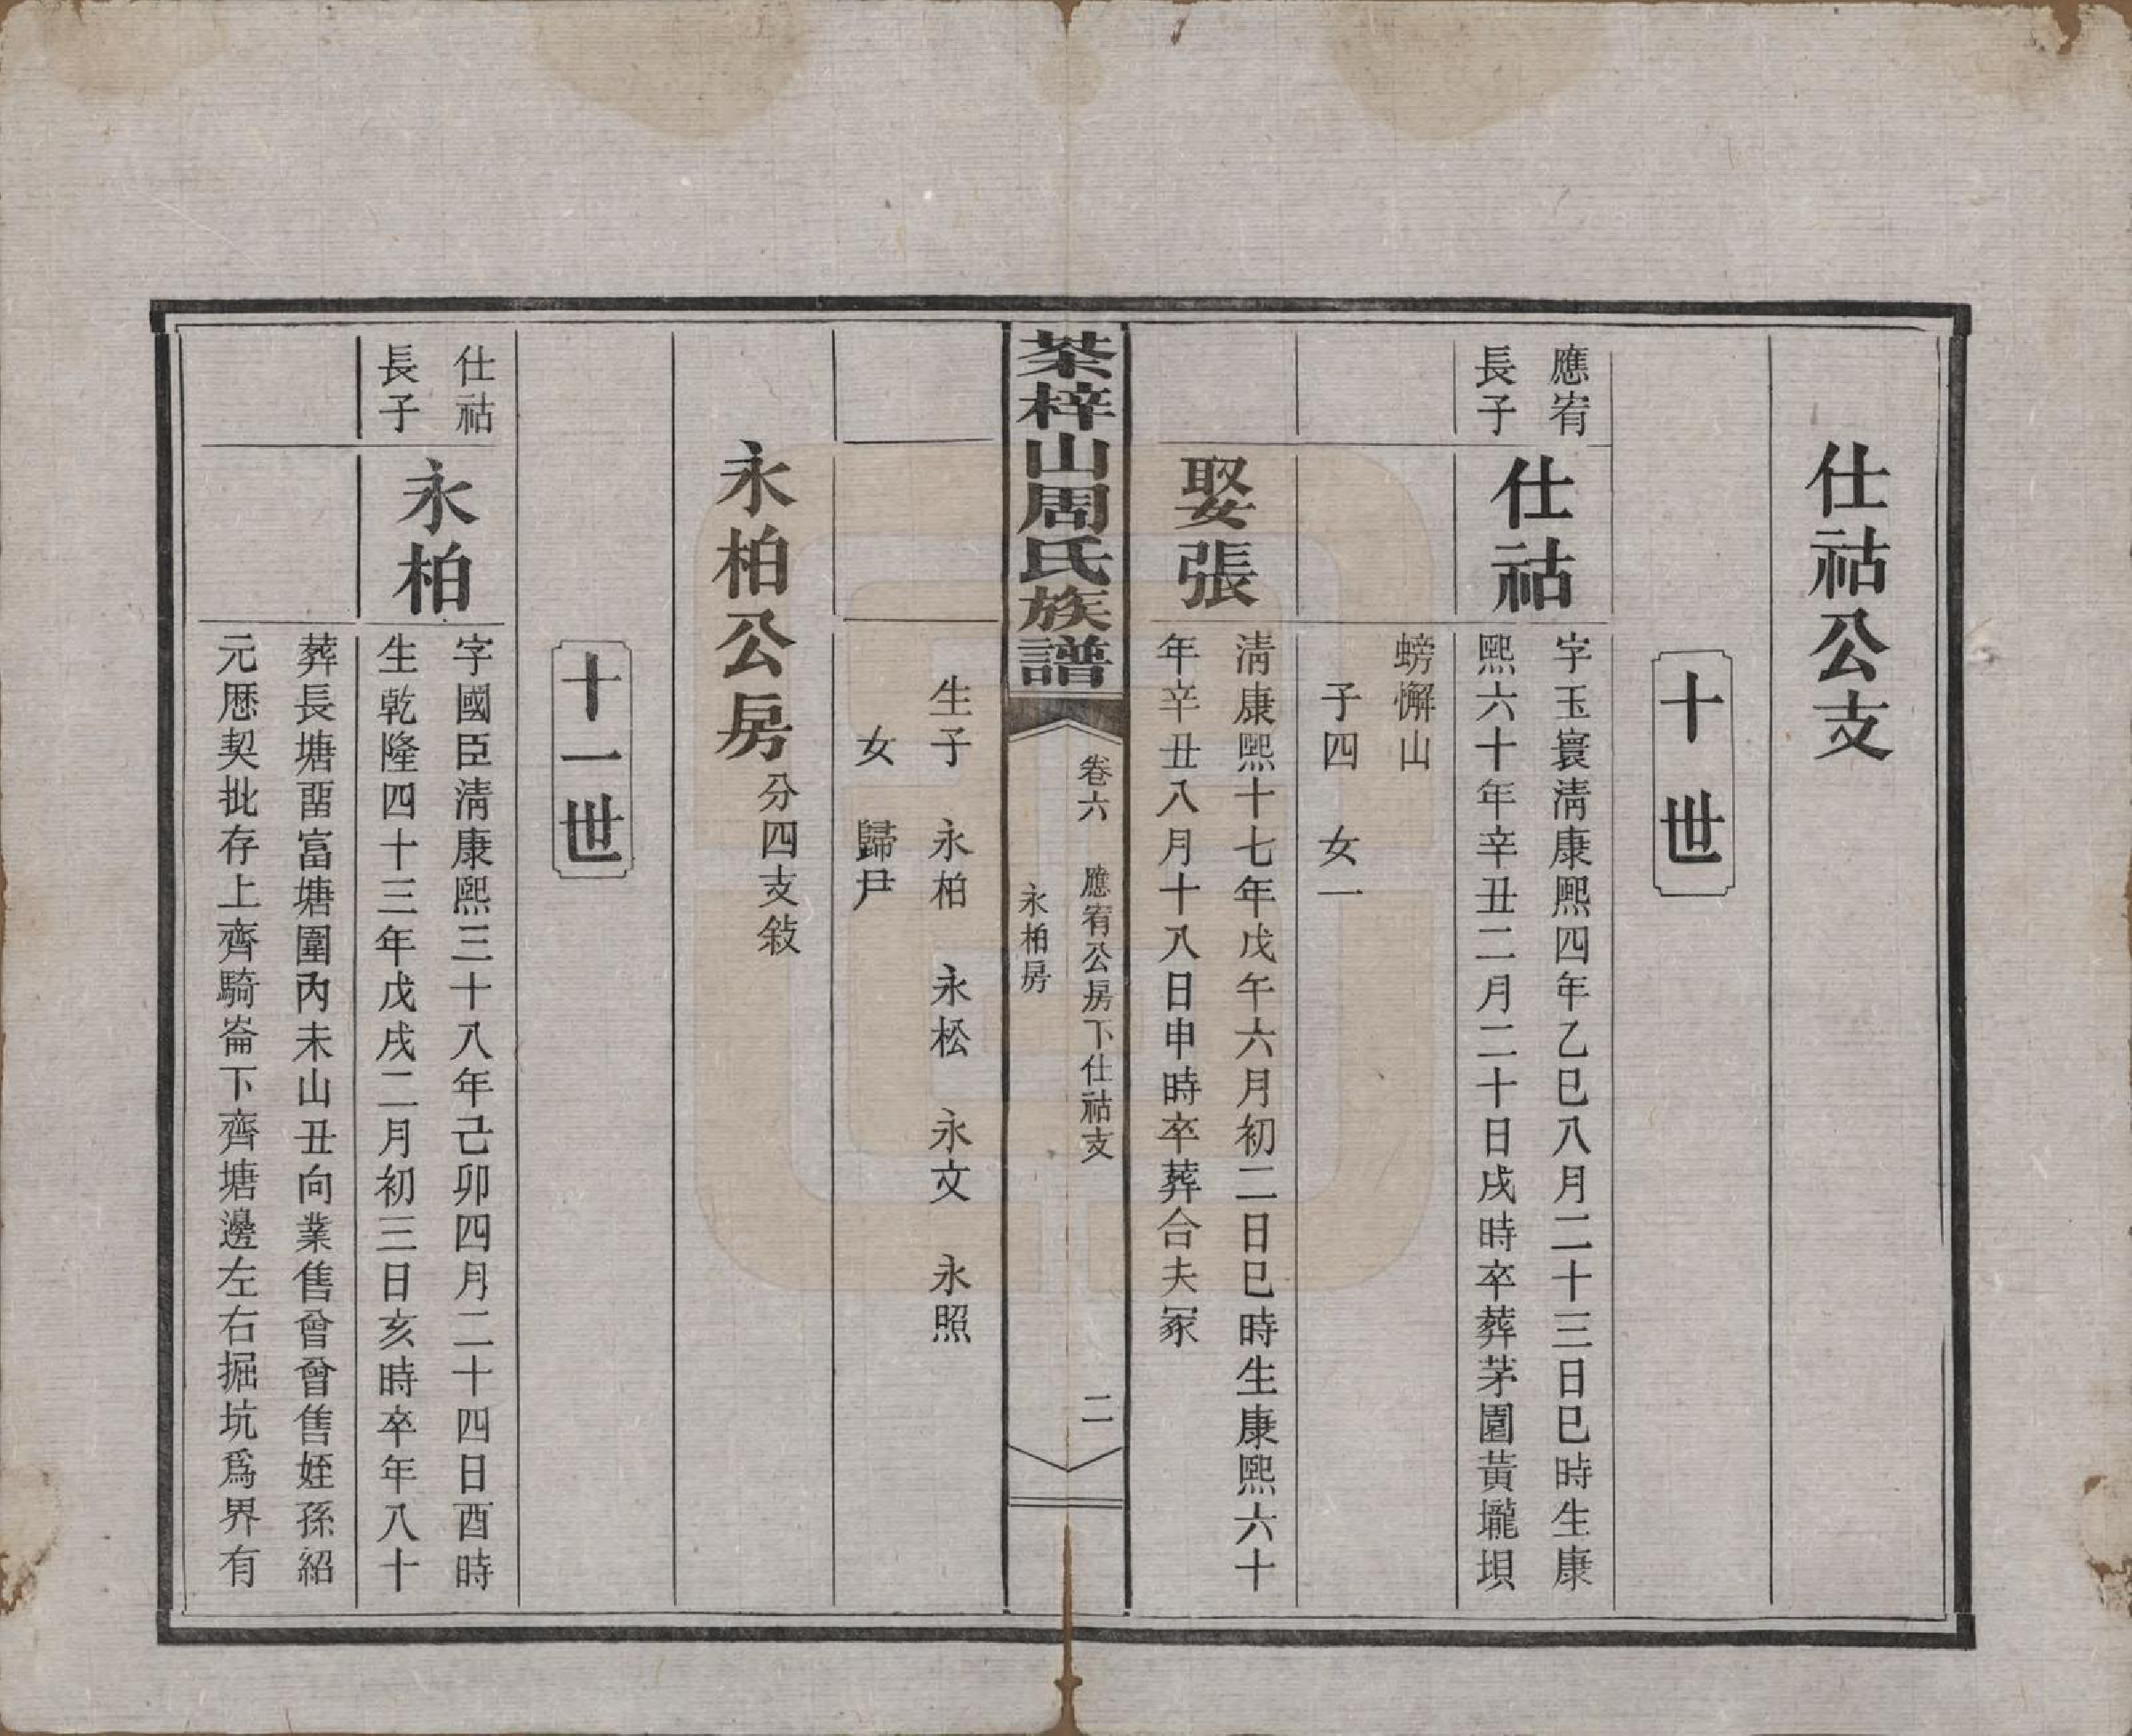 仕祜公支
十世
應宥
長子
仕祜
字玉寰淸康熙四年乙巳八月二十三日巳時生康
熙六十年辛丑二月二十日戌時卒葬茅園黃壠垻
螃懈山
子四　女一
娶張
淸康熙十七年戊午六月初二日巳時生康熙六十
年辛丑八月十八日申時卒葬合夫冢
茶梓山周氏族譜
卷六　應宥公房下仕祜支
永柏房
二
生子　永柏　永松　永文　永照
女　歸尹
永柏公房
分四支敍
十一世
仕祜
長子
永柏
字國臣淸康熙三十八年己卯四月二十四日酉時
生乾隆四十三年戊戌二月初三日亥時卒年八十
葬長塘畱富塘圍內未山丑向業售曾曾售姪孫紹
元厯契批存上齊騎崙下齊塘邊左右掘坑爲界有